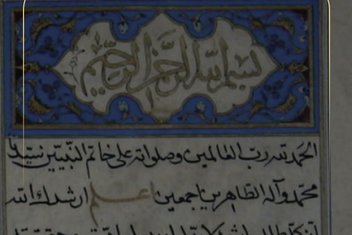 بسم الله الرحمن الرحيم
الحمد لله رب العالمين وصلواته على خاتم النبيين سيدنا
محمد وآله الطاهرين اجمعين اعلم ارشدك الله